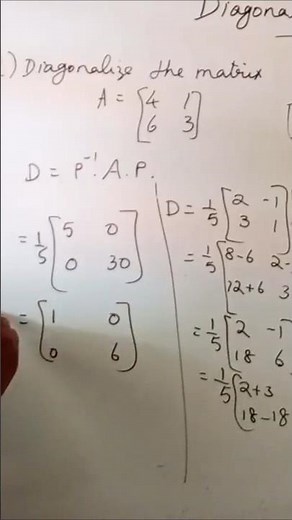 Diagona
) Diagonalize the matrix
A = [4 1
6 3]
D = P⁻¹. A. P.
= 1/5 [5 0
0 30]
= [1 0
0 6]
D = 1/5 [2 -1
3 1
= 1/5 [8-6 2-
12+6 3
= 1/5 [2 -1
18 6
= 1/5 [2+3
18-18